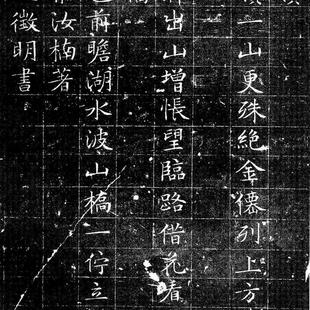 一山更殊絕金僊列上方
出山增悵望臨路借花看
前瞻湖水波山橋一佇立
汝楠著
徵明書